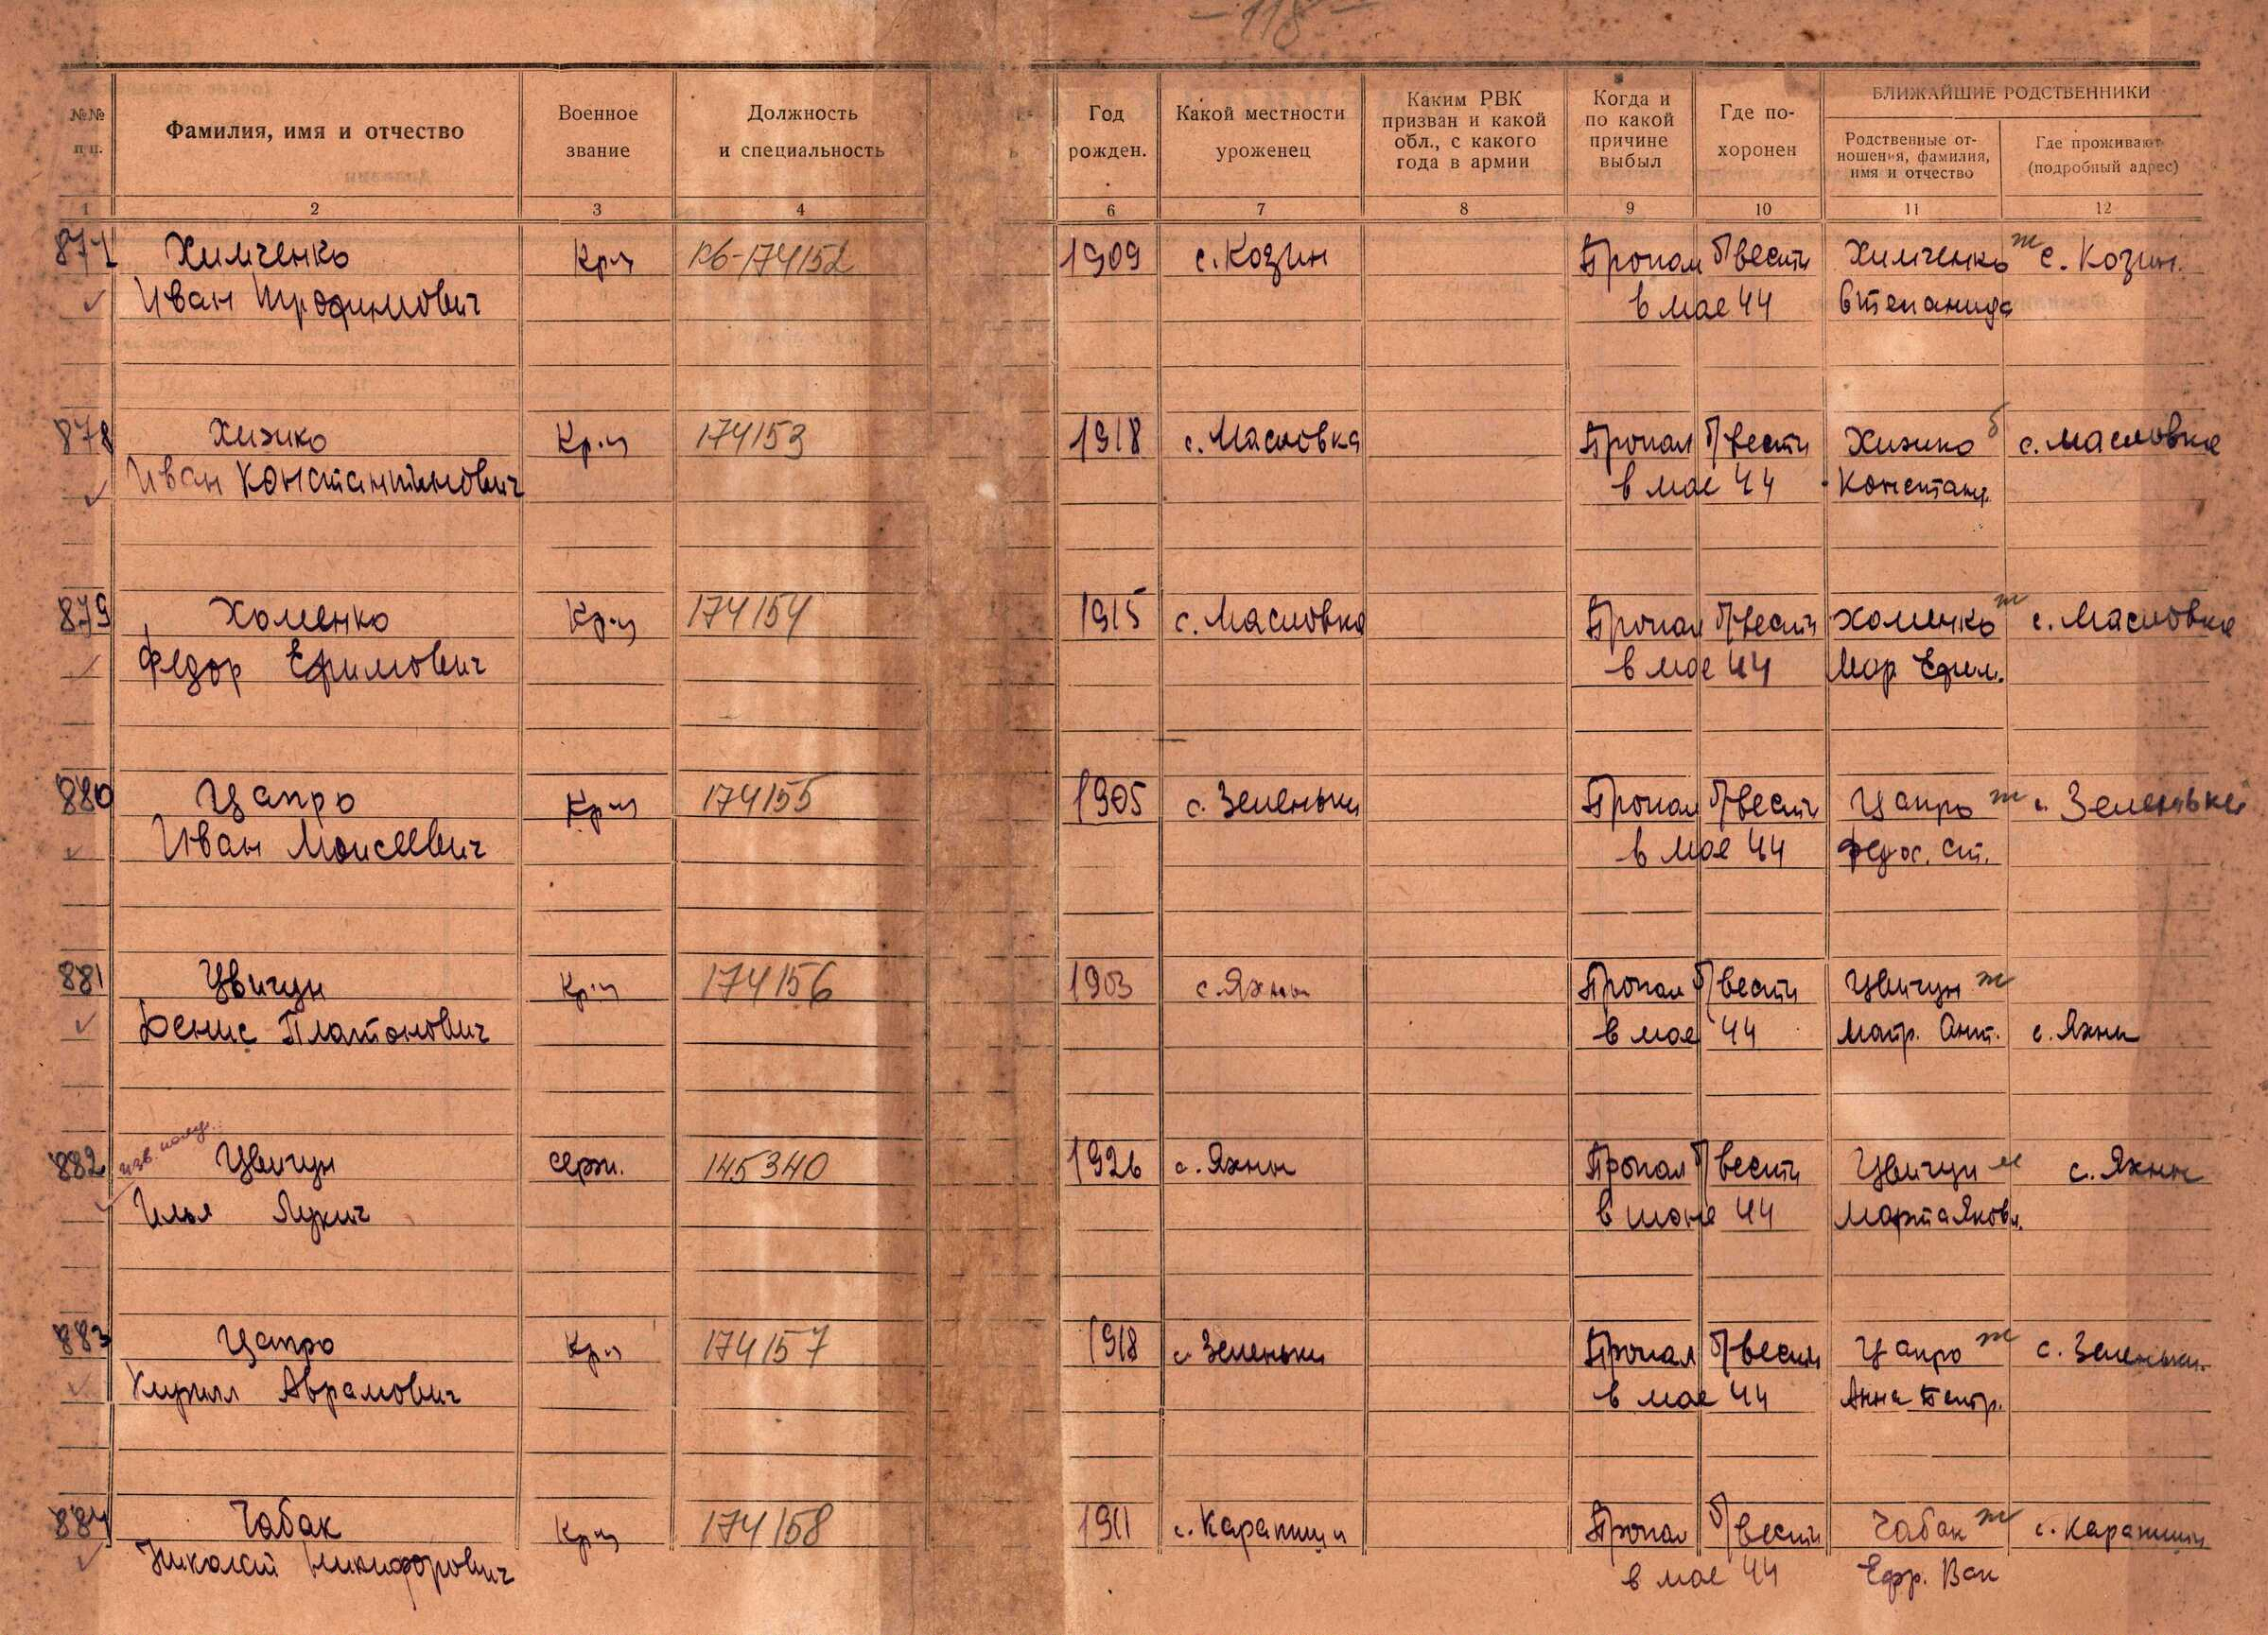 – 118 –
№№ п п.
Фамилия, имя и отчество
Военное звание
Должность и специальность
Год рожден.
Какой местности уроженец
Каким РВК призван и какой обл., с какого года в армии
Когда и по какой причине выбыл
Где по-хоронен
БЛИЖАЙШИЕ РОДСТВЕННИКИ
Родственные от-ношения, фамилия, имя и отчество
Где проживают (подробный адрес)
1 2 3 4 6 7 8 9 10 11 12
877 Химченко Кр-ц 174152 1909 с. Козин Пропал б/вести Химченко ж с. Козин
Иван Трофимович в мае 44 Степанида
878 Хижко Кр-ц 174153 1918 с. Масловка Пропал б/вести Хижко с. Масловка
Иван Константинович в мае 44 Констант.
879 Хоменко Кр-ц 174154 1915 с. Масловка Пропал б/вести Хоменко ж с. Масловка
Федор Ефимович в мае 44 Мар. Ефим.
880 Цапро Кр-ц 174155 1905 с. Зеленьки Пропал б/вести Цапро ж с. Зеленьки
Иван Моисеевич в мае 44 Федос. Ст.
881 Цвигун Кр-ц 174156 1903 с. Яхны Пропал б/вести Цвигун ж
Денис Платонович в мае 44 Матр. Ант. с. Яхны
изв. получ.
882 Цвигун серж. 145340 1926 с. Яхны Пропал б/вести Цвигун м с. Яхны
Илья Лукич в июне 44 Марта Яковл.
883 Цапро Кр-ц 174157 1918 с. Зеленьки Пропал б/вести Цапро ж с. Зеленьки.
Кирилл Аврамович в мае 44 Анна Петр.
884 Чабак Кр-ц 174158 1911 с. Карапиши Пропал б/вести Чабак ж с. Карапиши
Николай Никифорович в мае 44 Ефр. Вас